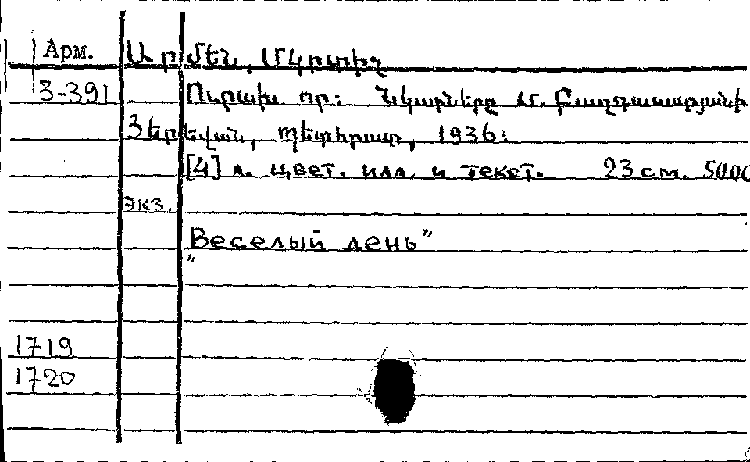 Арм. Արմեն, Մկրտիչ
3-391 Ուրախ որ: Նկարները Մ.
Յերեվան, պետհրատ, 1936:
[4] л. цвет. илл. и текст. 23 см. 5000
экз.
"Веселый день"
1719
1720